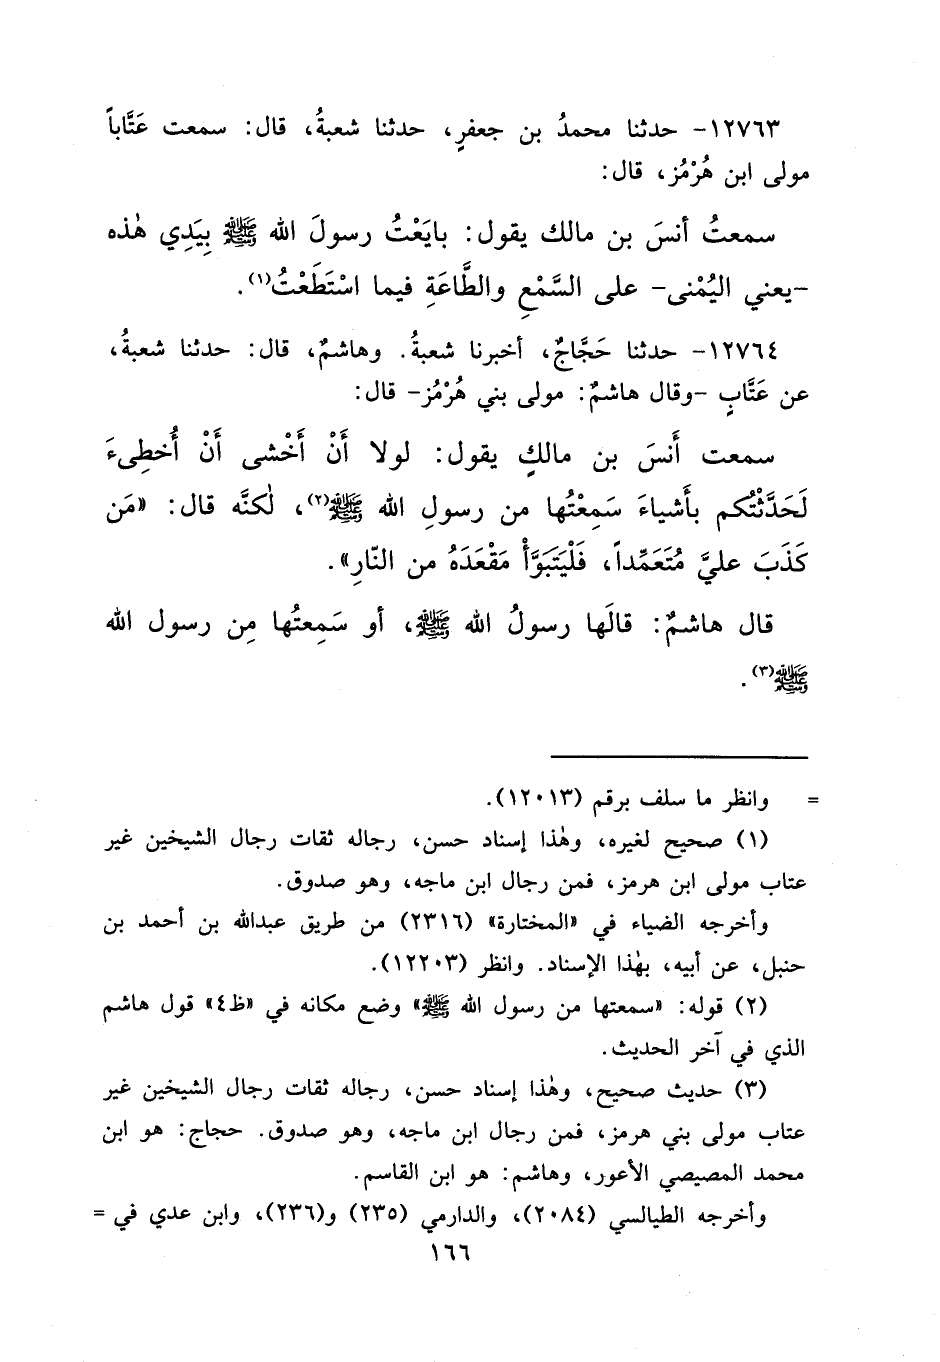 ١٢٧٦٣- حدثنا محمدُ بن جعفرٍ، حدثنا شعبةُ، قال: سمعت عَتَّاباً
مولى ابن هُرْمُز، قال:
سمعتُ أنسَ بن مالك يقول: بايَعْتُ رسولَ الله ﷺ بِيَدِي هٰذه
-يعني اليُمْنى- على السَّمْعِ والطَّاعَةِ فيما اسْتَطَعْتُ(١).
١٢٧٦٤- حدثنا حَجَّاجٌ، أخبرنا شعبةُ. وهاشمٌ، قال: حدثنا شعبةُ،
عن عَتَّابٍ -وقال هاشمٌ: مولى بني هُرْمُز- قال:
سمعت أَنسَ بن مالكٍ يقول: لولا أَنْ أَخْشى أَنْ أُخطِىءَ
لَحَدَّثْتُكم بأَشياءَ سَمِعْتُها من رسولِ الله ﷺ(٢)، لٰكنَّه قال: «مَن
كَذَبَ عليَّ مُتَعَمِّداً، فَلْيَتَبَوَّأْ مَقْعَدَهُ من النّارِ».
قال هاشمٌ: قالَها رسولُ الله ﷺ، أو سَمِعتُها مِن رسول الله
ﷺ(٣).
= وانظر ما سلف برقم (١٢٠١٣).
(١) صحيح لغيره، وهٰذا إسناد حسن، رجاله ثقات رجال الشيخين غير
عتاب مولى ابن هرمز، فمن رجال ابن ماجه، وهو صدوق.
وأخرجه الضياء في «المختارة» (٢٣١٦) من طريق عبدالله بن أحمد بن
حنبل، عن أبيه، بهٰذا الإسناد. وانظر (١٢٢٠٣).
(٢) قوله: «سمعتها من رسول الله ﷺ» وضع مكانه في «ظ٤» قول هاشم
الذي في آخر الحديث.
(٣) حديث صحيح، وهٰذا إسناد حسن، رجاله ثقات رجال الشيخين غير
عتاب مولى بني هرمز، فمن رجال ابن ماجه، وهو صدوق. حجاج: هو ابن
محمد المصيصي الأعور، وهاشم: هو ابن القاسم.
وأخرجه الطيالسي (٢٠٨٤)، والدارمي (٢٣٥) و(٢٣٦)، وابن عدي في =
١٦٦